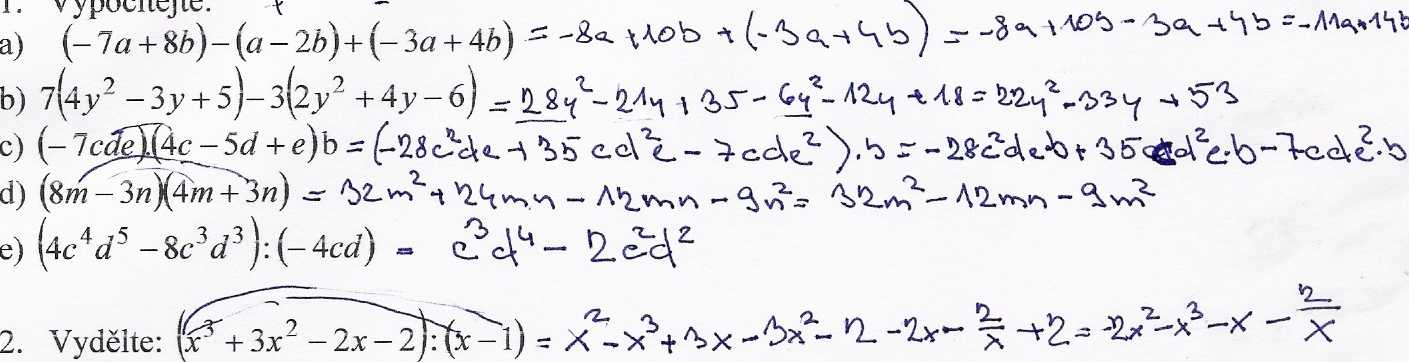 1. Vypočítejte:
a) (-7a+8b)-(a-2b)+(-3a+4b) = -8a+10b+(-3a+4b) = -8a+10b-3a+4b = -11a+14b
b) 7(4y²-3y+5)-3(2y²+4y-6) = 28y²-21y+35-6y²-12y+18 = 22y²-33y+53
c) (-7cde)(4c-5d+e)b = (-28c²de+35cd²e-7cde²).b = -28c²de·b+35cd²e·b-7cde²·b
d) (8m-3n)(4m+3n) = 32m²+24mn-12mn-9n² = 32m²-12mn-9m²
e) (4c⁴d⁵-8c³d³):(-4cd) = c³d⁴-2c²d²
2. Vydělte: (x³+3x²-2x-2):(x-1) = x²-x³+3x-3x²-2-2x-2/x+2 = -2x²-x³-x-2/x